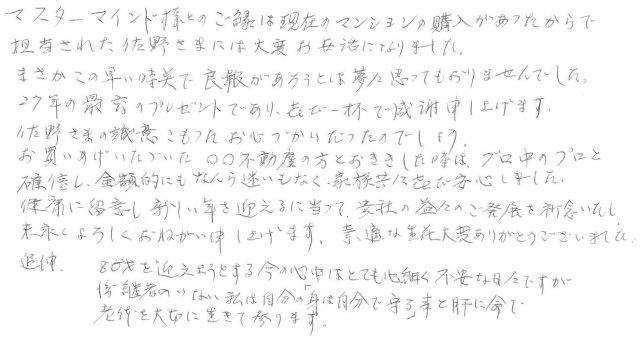 マスターマインド様とのご縁は現在のマンションの購入があったからで
担当された佐野さまには大変お世話になりました。
まさかこの早い時点で良報があろうとは夢々思ってもおりませんでした。
27年の最高のプレゼントであり、喜び一杯で感謝申し上げます。
佐野さまの誠意こもったお心づかいだったのでしょう。
お買いあげいただいた〇〇不動産の方とおききした時は、プロ中のプロと
確信し、金額的にもなんら迷いもなく、家族共々喜び安心しました。
健康に留意し新しい年を迎えるに当って、貴社の益々のご発展を祈念いたし
末永くよろしくおねがい申し上げます。素適な生花大変ありがとうございました。
追伸.
80歳を迎えようとする今の心中はとても心細く不安な日々ですが
後継者のいない私は自分の「身は自分で守る」事と肝に命じ
老後を大切に生きて参ります。